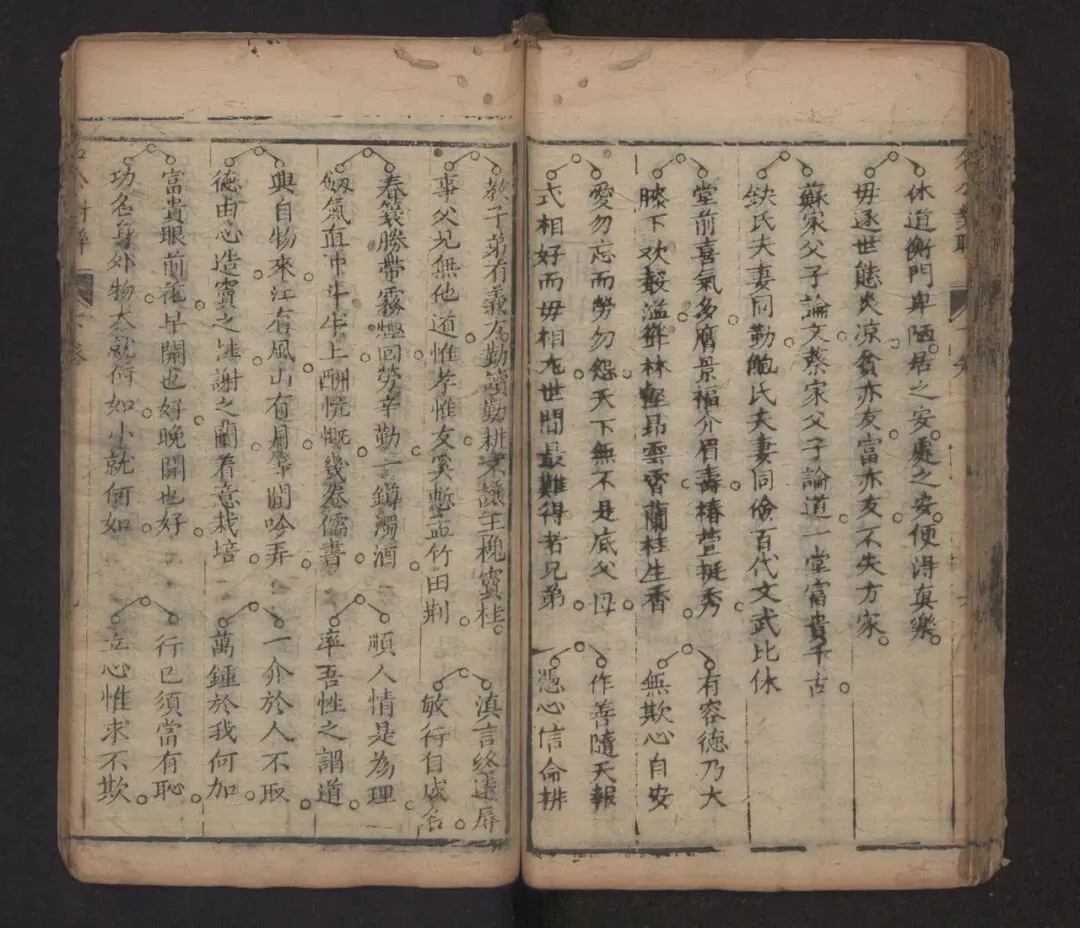 休道衡門卑陋居之安處之安便得真樂
毋逐世態炎凉貧亦友富亦友不失方家
蘇家父子論文蔡家父子論道一堂富貴千古
缺氏夫妻同勤鮑氏夫妻同儉百代文武比休
堂前喜氣多膺景福介眉壽椿萱挺秀
有容德乃大
膝下欢聲滥
林壑昂雲霄蘭桂生香
無欺心自安
愛勿忘而勞勿怨天下無不是底父母
作善隨天報
式相好而毋相尤世間最難得者兄弟
憑心信命耕
教子弟有義方勤讀勤耕
寶桂
滇言終遠辱
事父兄無他道惟孝惟友奚慙孟竹田荆
敏行自成名
春蓑勝帶霧煙回勞辛勤一鐏濁酒
順人情是為理
劒氣直冲斗牛上酬慌慨幾卷儒書
率吾性之謂道
興自物來江有風山有月
閒吟弄
一介於人不取
德由心造竇之
謝之蘭着意栽培
萬鍾於我何加
富貴眼前花早開也好晚開也好
行已須當有恥
功名身外物大就何如小就何如
立心惟求不欺